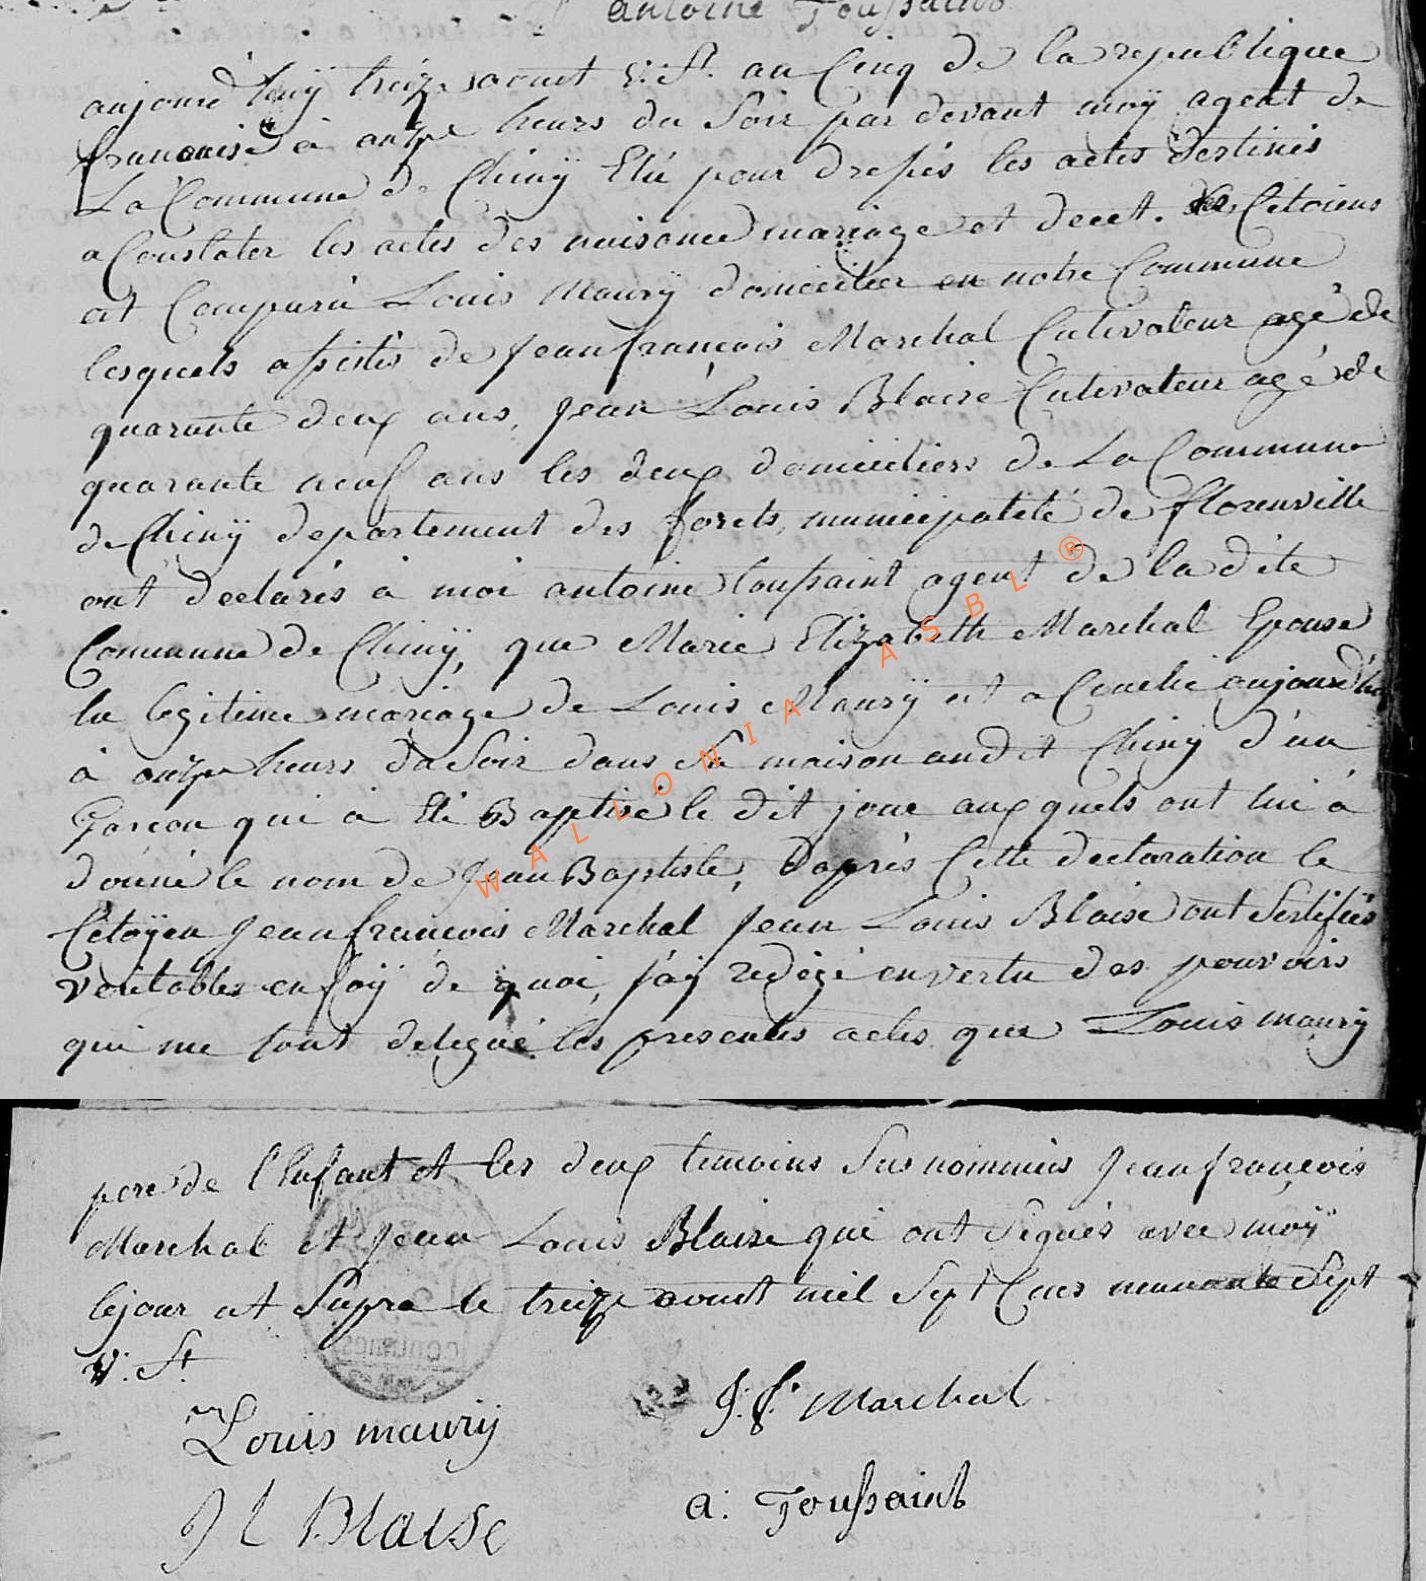 antoine Toussaint
aujourd'huÿ treize aout V: St. an Cinq de la republique
francaise à onze heurs du Soir par devant moÿ agent de
La Commune de Chinÿ Elú pour dresses les actes destinés
a Constater les actes des naisance mariage et decet. des Citoiens
at Comparu Louis Maurÿ domicilier en notre Commune
lesquels assistés de jean françois Marchal Cultivateur agé de
quarante deux ans, jean Louis Blaise Cultivateur agé de
quarante neuf ans les deux domiciliers de La Commune
de Chinÿ departement des forets, municipalité de florenville
ont declarés à moi antoine toussaint agent de la dite
Commune de Chinÿ, que Marie Elizabeth Marchal Epouse
la legitime mariage de Louis Maurÿ et a Couché aujourd'hu
à onze heurs du Soir dans Sa maison audit Chiny d'un
Garcon qui à Eté Baptisé le dit jour auxquels ont lui à
donné le nom de Jean Baptiste, d'après Cette declaration le
Citoÿen Jean francois Marchal Jean Louis Blaise ont Sertifiés
veritables en foÿ de quoi, j'aÿ redigé en vertu des pouvoirs
qui me sont delegué les presentes actes que Louis maurÿ
pere de l'Enfant et les deux temoins Sus nommés Jean françois
Marchal et Jean Louis Blaise qui ont Signés avec moÿ
le jour at Supra le treize aoust mil Sept Cens nonnante Sept
V: St.
Louis maurÿ
J: f: Marchal
J L Blaise
a: Toussaint
WALLONIA ASBL ®